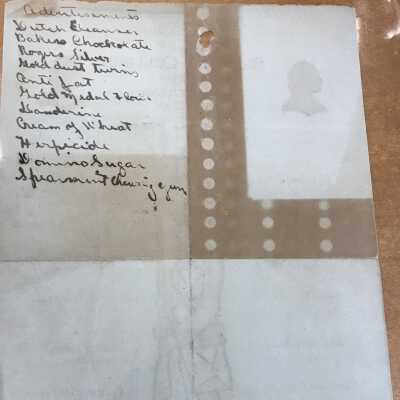 Advertisements
Dutch Cleanser
Bakers Chockolate
Rogers Silver
Gold dust twins
Anti Fat
Gold Medal Flour
Danderine
Cream of Wheat
Herpicide
Domino Sugar
Spearmint Chewing gum